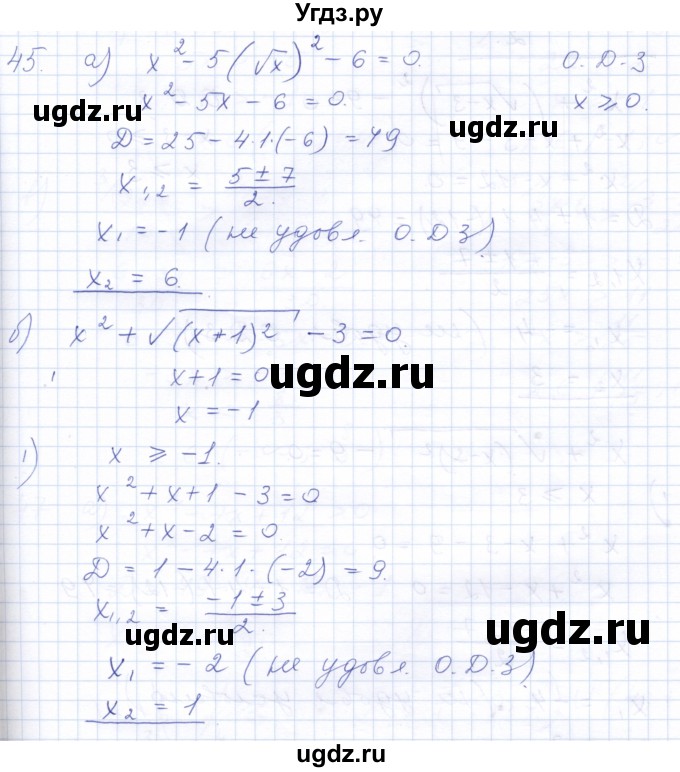 Угдз.ру
45. а) x² - 5(√x)² - 6 = 0. О.D.З
x² - 5x - 6 = 0. x ⩾ 0.
ugdz.ru ugdz.ru
D = 25 - 4·1·(-6) = 49
x₁,₂ = (5 ± 7)/2.
x₁ = -1 (не удовл. О.D.З.)
x₂ = 6.
б) x² + √((x+1)²) - 3 = 0.
x + 1 = 0
ugdz.ru
x = -1
1) x ⩾ -1.
x² + x + 1 - 3 = 0
x² + x - 2 = 0.
D = 1 - 4·1·(-2) = 9.
x₁,₂ = (-1 ± 3)/2.
ugdz.ru ugdz.ru
x₁ = -2 (не удовл. О.D.З.)
x₂ = 1
ugdz.ru